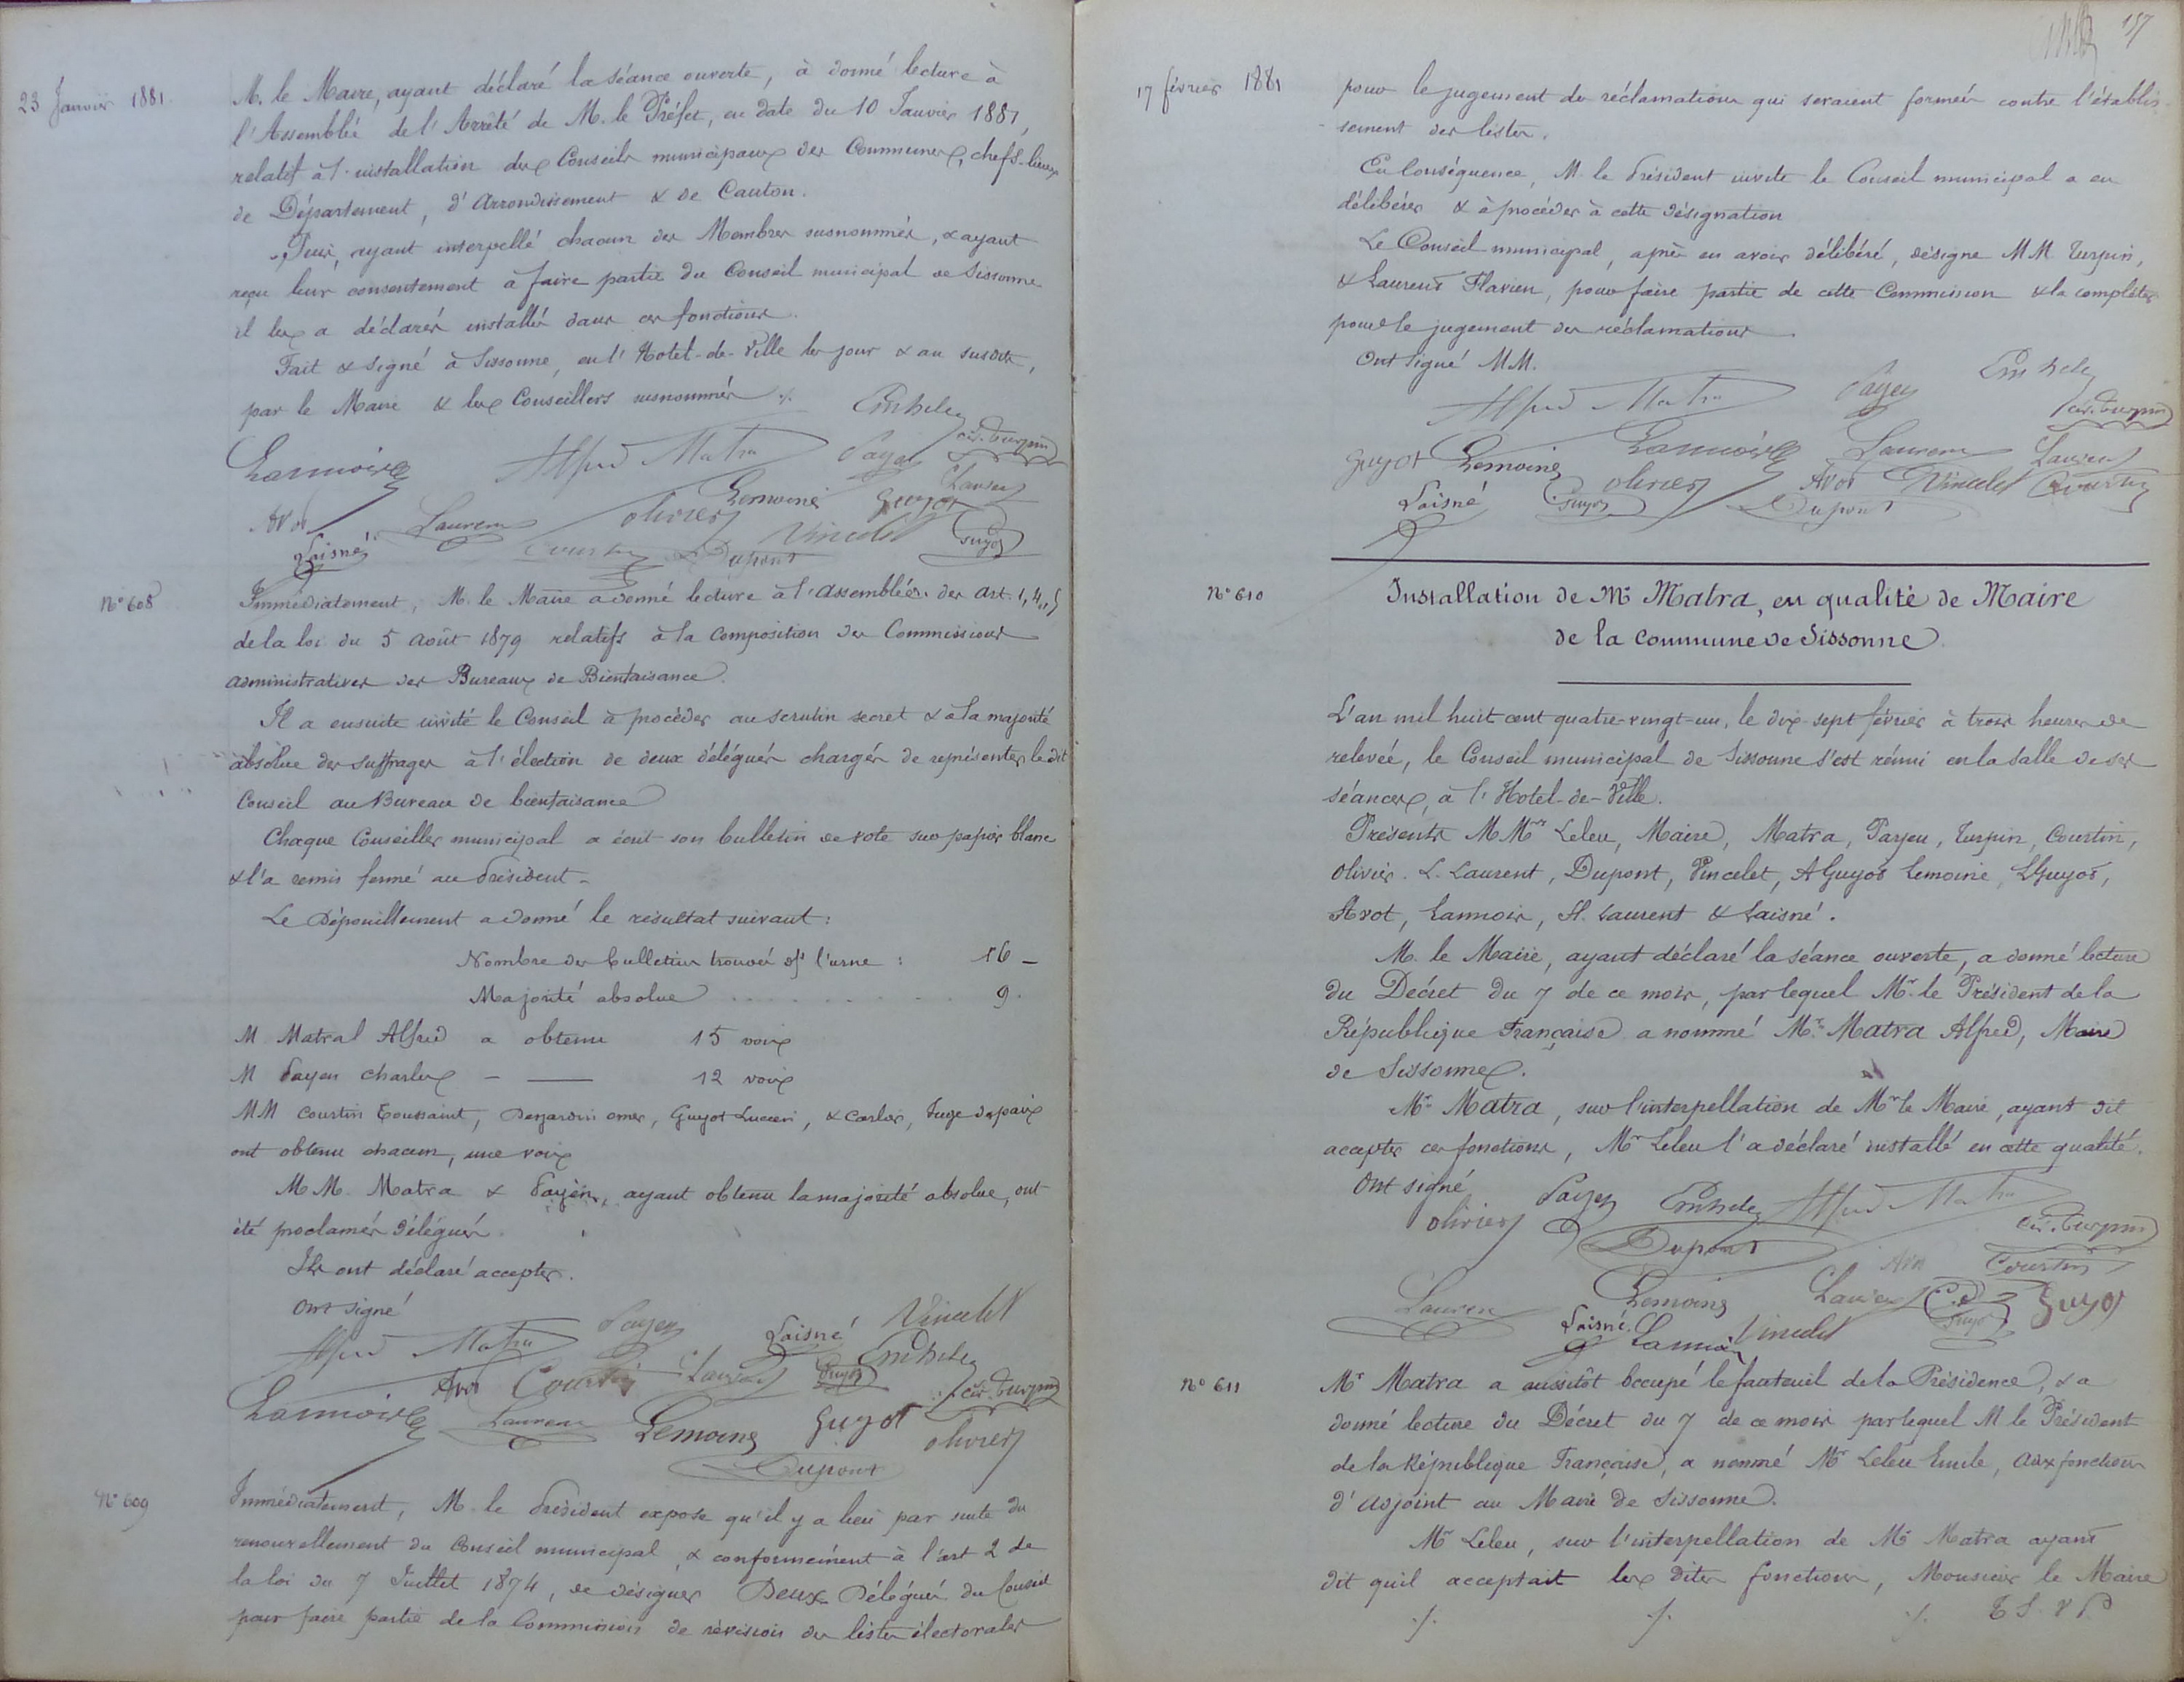 23 Janvier 1881.
M. le Maire, ayant déclaré la séance ouverte, à donné lecture à
l'Assemblée de l'Arrêté de M. le Préfet, en date du 10 Janvier 1881,
relatif à l'installation des Conseils municipaux des Communes, chefs-lieux
de Département, d'Arrondissement & de Canton.
Puis, ayant interpellé chacun des Membres susnommés, & ayant
reçu leur consentement à faire partie du Conseil municipal de Sissonne
il les a déclarés installés dans ces fonctions.
Fait & signé à Sissonne, en l'Hotel-de-Ville les jour & an susdits,
par le Maire & les Conseillers susnommés ./.
Lannois Alfred Matra Payen Turpin
Avot Laurent Olivier Lemoine Guyot Laurent
Laisné Courtin Dupont Vincelet Guyot
N° 608
Immédiatement, M. le Maire a donné lecture à l'Assemblée des art. 1, 4, 5
de la loi du 5 Août 1879 relatifs à la Composition des Commissions
administratives des Bureaux de Bienfaisance.
Il a ensuite invité le Conseil à procéder au scrutin secret & à la majorité
absolue des suffrages à l'élection de deux délégués chargés de représenter le dit
Conseil au Bureau de bienfaisance
Chaque Conseiller municipal a écrit son bulletin de vote sur papier blanc
& l'a remis fermé au Président -
Le Dépouillement a donné le résultat suivant :
Nombre des bulletins trouvés ds l'urne : 16 -
Majorité absolue . . . . . . . . . . 9.
M Matral Alfred a obtenu 15 voix
M Payen Charles - — 12 voix
MM Courtin Toussaint, Desjardin omer, Guyot Lucien, & Carlos, Juge de paix
ont obtenu chacun, une voix
MM. Matra & Payen, ayant obtenu la majorité absolue, ont
été proclamés délégués.
Ils ont déclaré accepter.
Ont signé
Alfred Matra Payen Laisné Vincelet
Avot Courtin Laurent Guyot Turpin
Lannois Laurent Lemoine Guyot Olivier
Dupont
N° 609
Immédiatement, M. le Président expose qu'il y a lieu par suite du
renouvellement du Conseil municipal, & conformément à l'art 2 de
la loi du 7 Juillet 1874, de désigner Deux Délégués du Conseil
pour faire partie de la Commission de révision des listes électorales
157
17 février 1881
pour le jugement des réclamations qui seraient formées contre l'établis-
sement des listes.
En Conséquence, M. le Président invite le Conseil municipal a en
délibérer & à procéder à cette désignation
Le Conseil municipal, après en avoir délibéré, désigne MM Turpin,
& Laurent Flavien, pour faire partie de cette Commission & la compléter
pour le jugement des réclamations.
Ont signé MM.
Alfred Matra Payen Turpin
Guyot Lemoine Lannois Laurent Laurent
Laisné Guyot Olivier Avot Vincelet Courtin
Dupont
N° 610
Installation de Mr Matra, en qualité de Maire
de la Commune de Sissonne.
L'an mil huit cent quatre-vingt-un, le dix-sept février à trois heures de
relevée, le Conseil municipal de Sissonne s'est réuni en la salle de ses
séances, à l'Hotel-de-Ville.
Présents MMrs Leleu, Maire, Matra, Payen, Turpin, Courtin,
Olivier. L. Laurent, Dupont, Vincelet, A Guyot Lemoine, L Guyot,
Avot, Lannois, Fl. Laurent & Laisné.
M. le Maire, ayant déclaré la séance ouverte, a donné lecture
du Décret du 7 de ce mois, par lequel Mr. le Président de la
République Française a nommé Mr. Matra Alfred, Maire
de Sissonne.
Mr. Matra, sur l'interpellation de Mr le Maire, ayant dit
accepter ces fonctions, Mr Leleu l'a déclaré installé en cette qualité.
Ont signé
Olivier Payen Alfred Matra Turpin
Dupont Avot Courtin
Laurent Lemoine Laurent Guyot Guyot
Laisné Lannois Vincelet
N° 611
Mr Matra a aussitôt occupé le fauteuil de la Présidence, & a
donné lecture du Décret du 7 de ce mois par lequel M le Président
de la République Française, a nommé Mr Leleu Emile, aux fonctions
d'adjoint au Maire de Sissonne.
Mr Leleu, sur l'interpellation de Mr Matra ayant
dit qu'il acceptait les dites fonctions, Monsieur le Maire
./. ./. ./. T S. V P